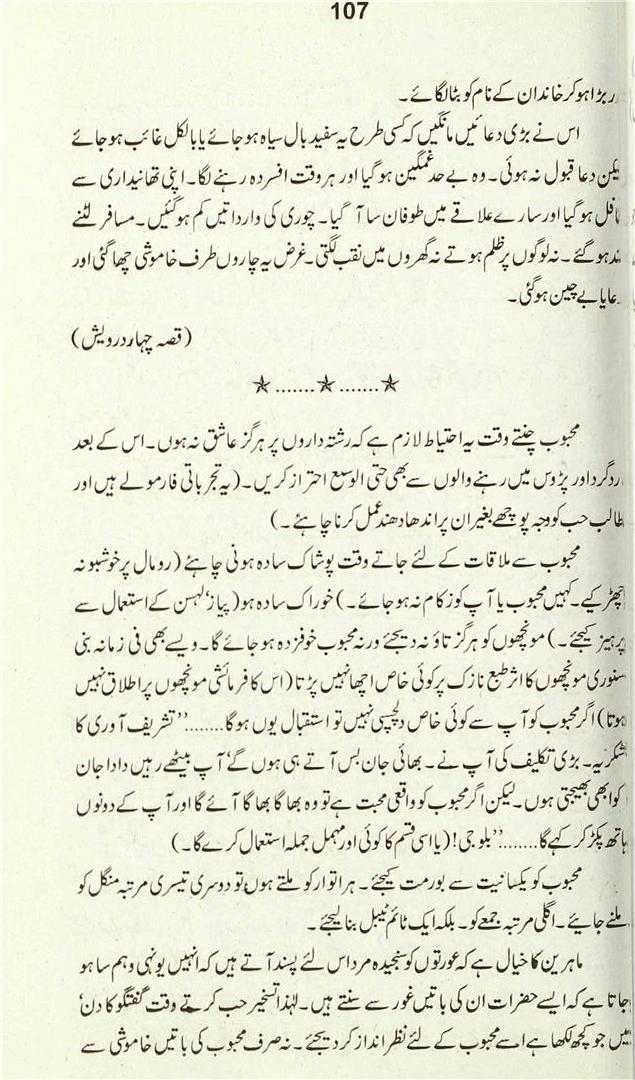 107
ر بڑا ہو کر خاندان کے نام کو بٹا لگائے۔
اس نے بڑی دعائیں مانگیں کہ کسی طرح یہ سفید بال سیاہ ہو جائے یا بالکل غائب ہو جائے
لیکن دعا قبول نہ ہوئی۔ وہ بے حد غمگین ہو گیا اور ہر وقت افسردہ رہنے لگا۔ اپنی تھانیداری سے
غافل ہو گیا اور سارے علاقے میں طوفان سا آ گیا۔ چوری کی وارداتیں کم ہو گئیں۔ مسافر لٹنے
بند ہو گئے۔ نہ لوگوں پر ظلم ہوتے نہ گھروں میں نقب لگتی۔ غرض یہ چاروں طرف خاموشی چھا گئی اور
رعایا بے چین ہو گئی۔
(قصہ چہار درویش)
★.......★.......★
محبوب چنتے وقت یہ احتیاط لازم ہے کہ رشتہ داروں پر ہرگز عاشق نہ ہوں۔ اس کے بعد
اردگرد اور پڑوس میں رہنے والوں سے بھی حتی الوسع احتراز کریں۔ (یہ تجرباتی فارمولے ہیں اور
طالب حب کو وجہ پوچھے بغیر ان پر اندھا دھند عمل کرنا چاہئے۔)
محبوب سے ملاقات کے لئے جاتے وقت پوشاک سادہ ہونی چاہئے (رومال پر خوشبو نہ
چھڑکیے۔ کہیں محبوب یا آپ کو زکام نہ ہو جائے۔) خوراک سادہ ہو (پیاز' لہسن کے استعمال سے
پرہیز کیجئے۔) مونچھوں کو ہرگز تاؤ نہ دیجئے ورنہ محبوب خوفزدہ ہو جائے گا۔ ویسے بھی فی زمانہ بنی
سنوری مونچھوں کا اثر طبع نازک پر کوئی خاص اچھا نہیں پڑتا (اس کا فرمائشی مونچھوں پر اطلاق نہیں
ہوتا) اگر محبوب کو آپ سے کوئی خاص دلچسپی نہیں تو استقبال یوں ہوگا........''تشریف آوری کا
شکریہ۔ بڑی تکلیف کی آپ نے۔ بھائی جان بس آتے ہی ہوں گے' آپ بیٹھے رہیں دادا جان
کو ابھی بھیجتی ہوں۔ لیکن اگر محبوب کو واقعی محبت ہے تو وہ بھاگا بھاگا آئے گا اور آپ کے دونوں
ہاتھ پکڑ کر کہے گا........''بلو جی! (یا اسی قسم کا کوئی اور مہمل جملہ استعمال کرے گا۔)
محبوب کو یکسانیت سے بور مت کیجئے۔ ہر اتوار کو ملتے ہوں تو دوسری تیسری مرتبہ منگل کو
ملنے جائیے۔ اگلی مرتبہ جمعے کو۔ بلکہ ایک ٹائم ٹیبل بنا لیجئے۔
ماہرین کا خیال ہے کہ عورتوں کو سنجیدہ مرد اس لئے پسند آتے ہیں کہ انہیں یونہی وہم سا ہو
جاتا ہے کہ ایسے حضرات ان کی باتیں غور سے سنتے ہیں۔ لہٰذا تسخیر حب کرتے وقت گفتگو کا دن'
میں جو کچھ لکھا ہے اسے محبوب کے لئے نظر انداز کر دیجئے۔ نہ صرف محبوب کی باتیں خاموشی سے